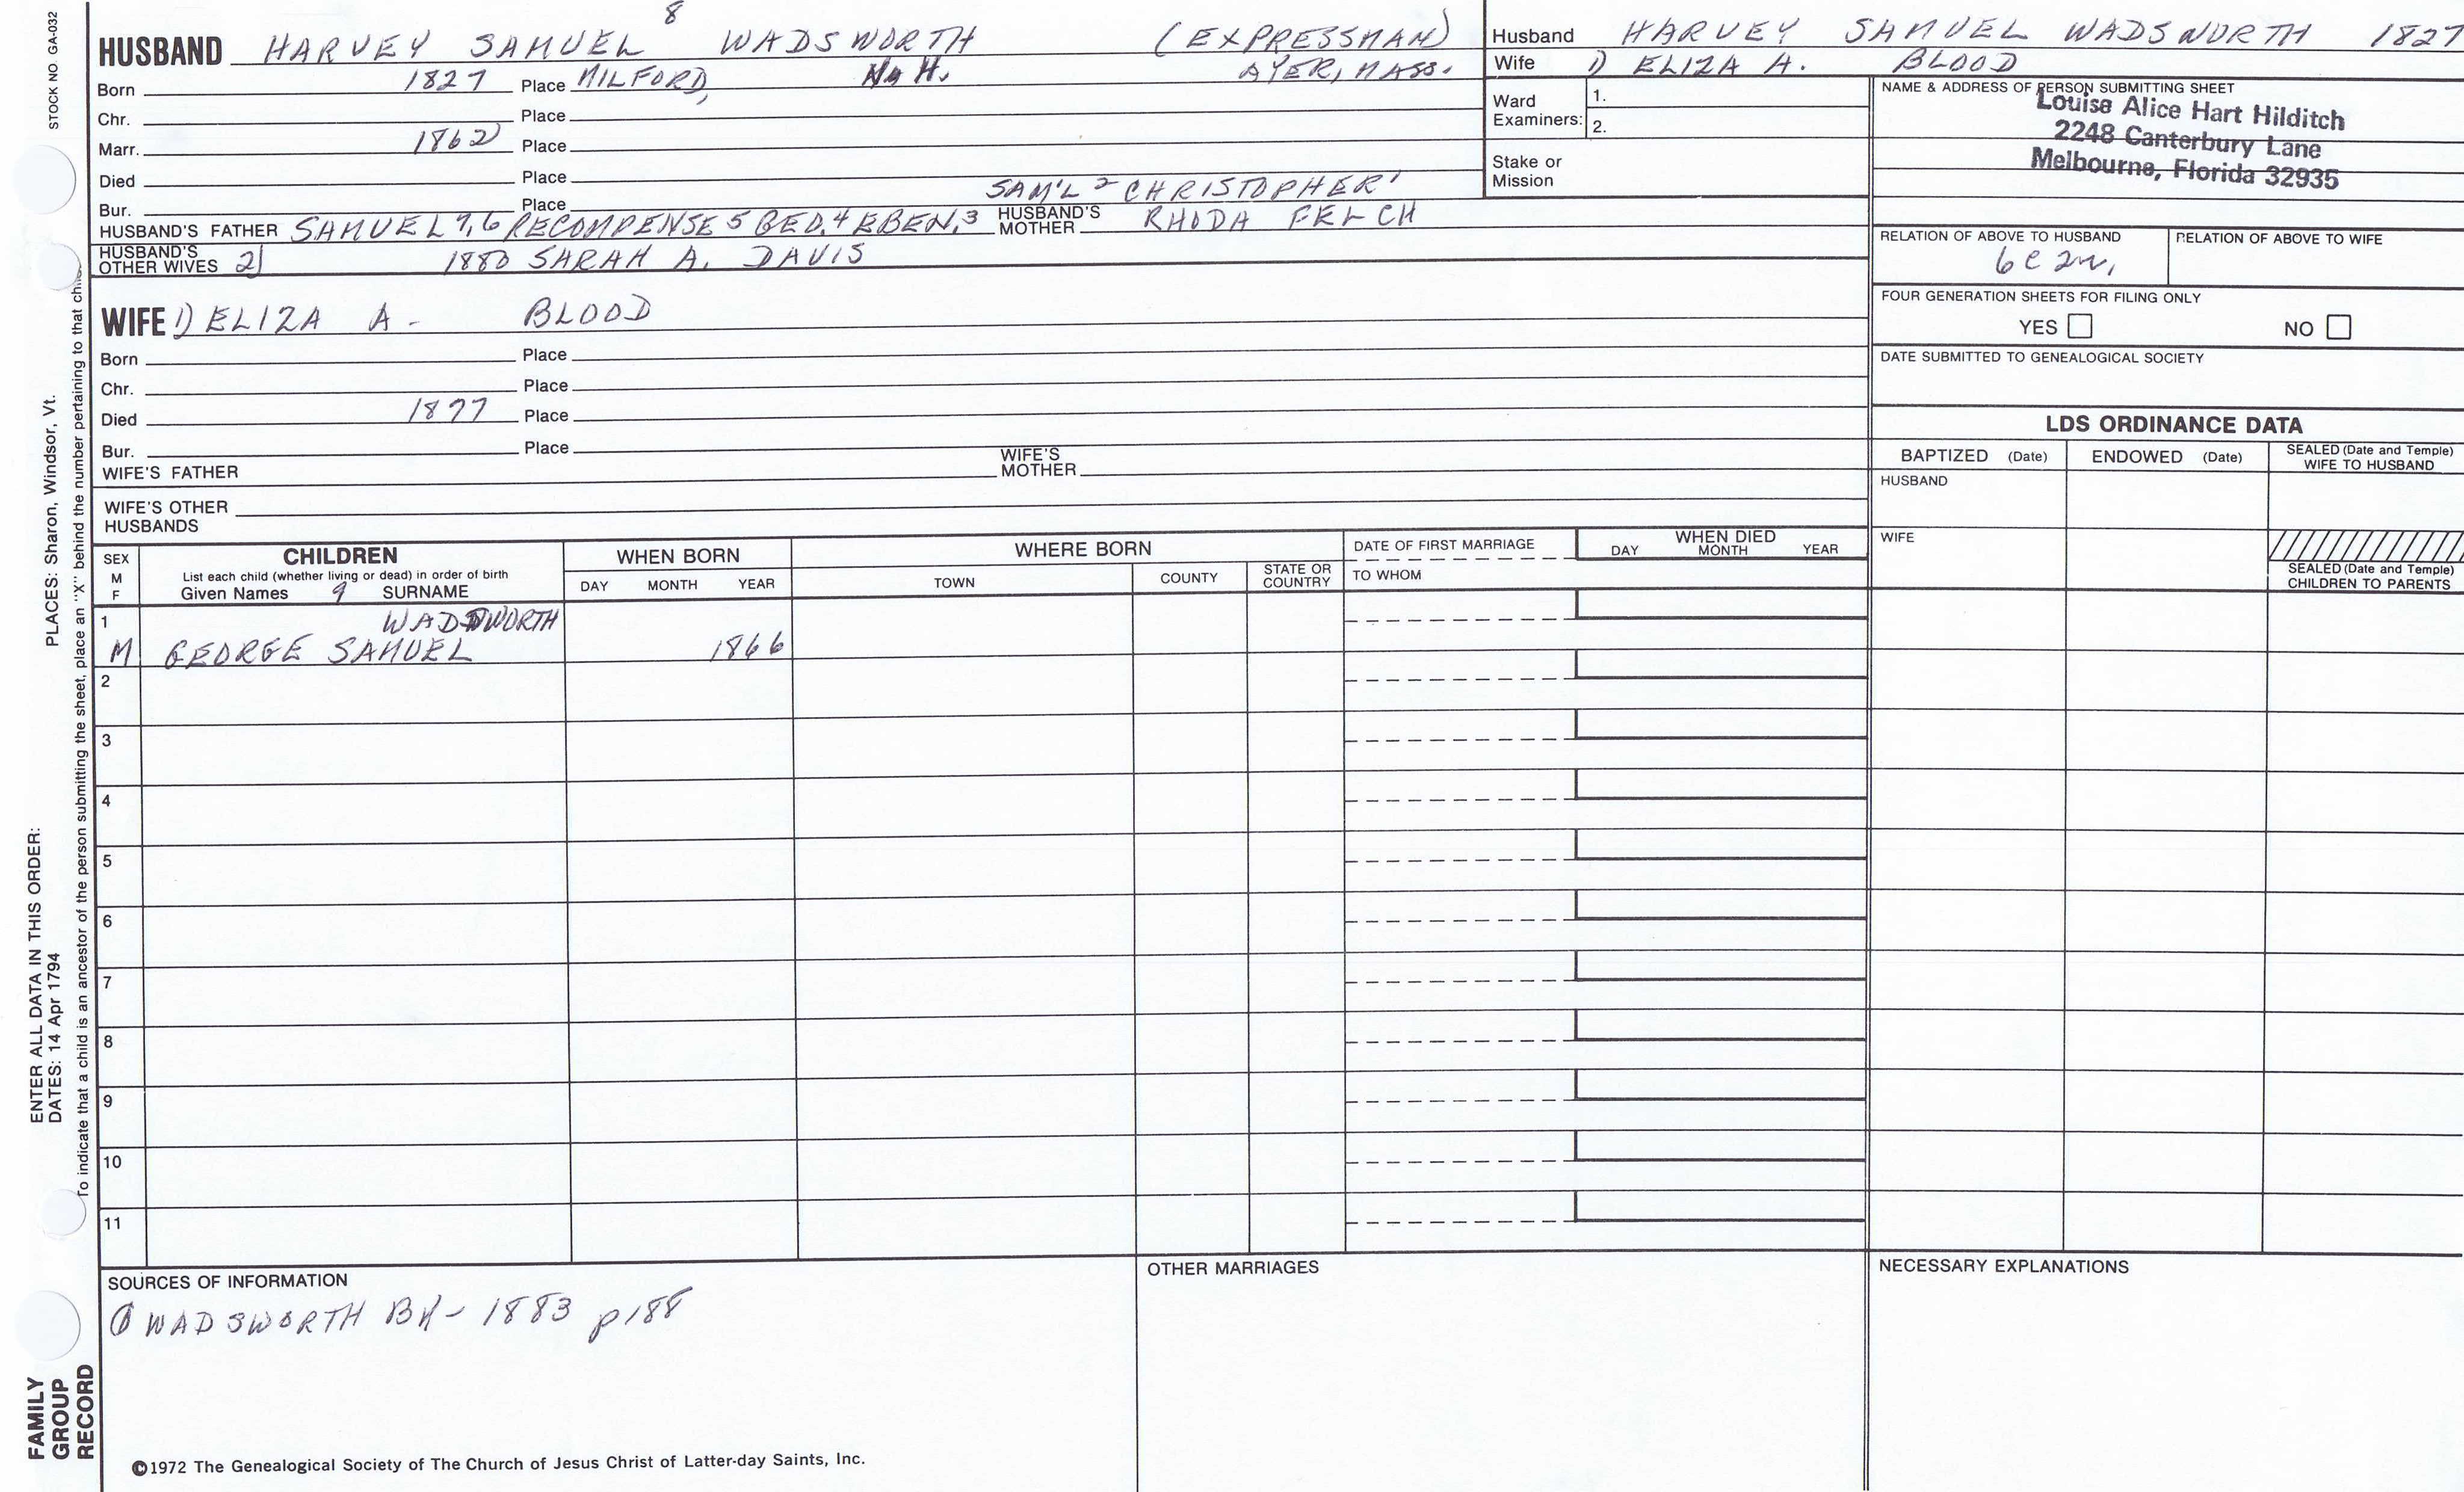 STOCK NO. GA-032
8
HUSBAND HARVEY SAMUEL WADSWORTH (EXPRESSMAN)
Born 1827 Place MILFORD, N.H. AYER, MASS.
Chr. Place
Marr. 1862 Place
Died Place
SAM'L 2 CHRISTOPHER 1
Bur. Place
HUSBAND'S FATHER SAMUEL 7,6 RECOMPENSE 5 GEO.4 EBEN.3 HUSBAND'S MOTHER RHODA FELCH
HUSBAND'S OTHER WIVES 2) 1880 SARAH A. DAVIS
WIFE 1) ELIZA A. BLOOD
Born Place
Chr. Place
Died 1877 Place
Bur. Place
WIFE'S FATHER WIFE'S MOTHER
WIFE'S OTHER HUSBANDS
Husband HARVEY SAMUEL WADSWORTH 1827
Wife 1) ELIZA A. BLOOD
Ward Examiners: 1.
2.
Stake or Mission
NAME & ADDRESS OF PERSON SUBMITTING SHEET
Louise Alice Hart Hilditch
2248 Canterbury Lane
Melbourne, Florida 32935
RELATION OF ABOVE TO HUSBAND RELATION OF ABOVE TO WIFE
6c 2r,
FOUR GENERATION SHEETS FOR FILING ONLY
YES NO
DATE SUBMITTED TO GENEALOGICAL SOCIETY
LDS ORDINANCE DATA
BAPTIZED (Date) ENDOWED (Date) SEALED (Date and Temple) WIFE TO HUSBAND
HUSBAND
WIFE
SEALED (Date and Temple) CHILDREN TO PARENTS
SEX M F
CHILDREN
List each child (whether living or dead) in order of birth
Given Names 9 SURNAME
WHEN BORN
DAY MONTH YEAR
WHERE BORN
TOWN COUNTY STATE OR COUNTRY
DATE OF FIRST MARRIAGE
TO WHOM
WHEN DIED
DAY MONTH YEAR
1 WADSWORTH
M GEORGE SAMUEL 1866
2
3
4
5
6
7
8
9
10
11
SOURCES OF INFORMATION
① WADSWORTH BK - 1883 p188
OTHER MARRIAGES
NECESSARY EXPLANATIONS
©1972 The Genealogical Society of The Church of Jesus Christ of Latter-day Saints, Inc.
FAMILY
GROUP
RECORD
ENTER ALL DATA IN THIS ORDER:
DATES: 14 Apr 1794
PLACES: Sharon, Windsor, Vt.
To indicate that a child is an ancestor of the person submitting the sheet, place an "X" behind the number pertaining to that